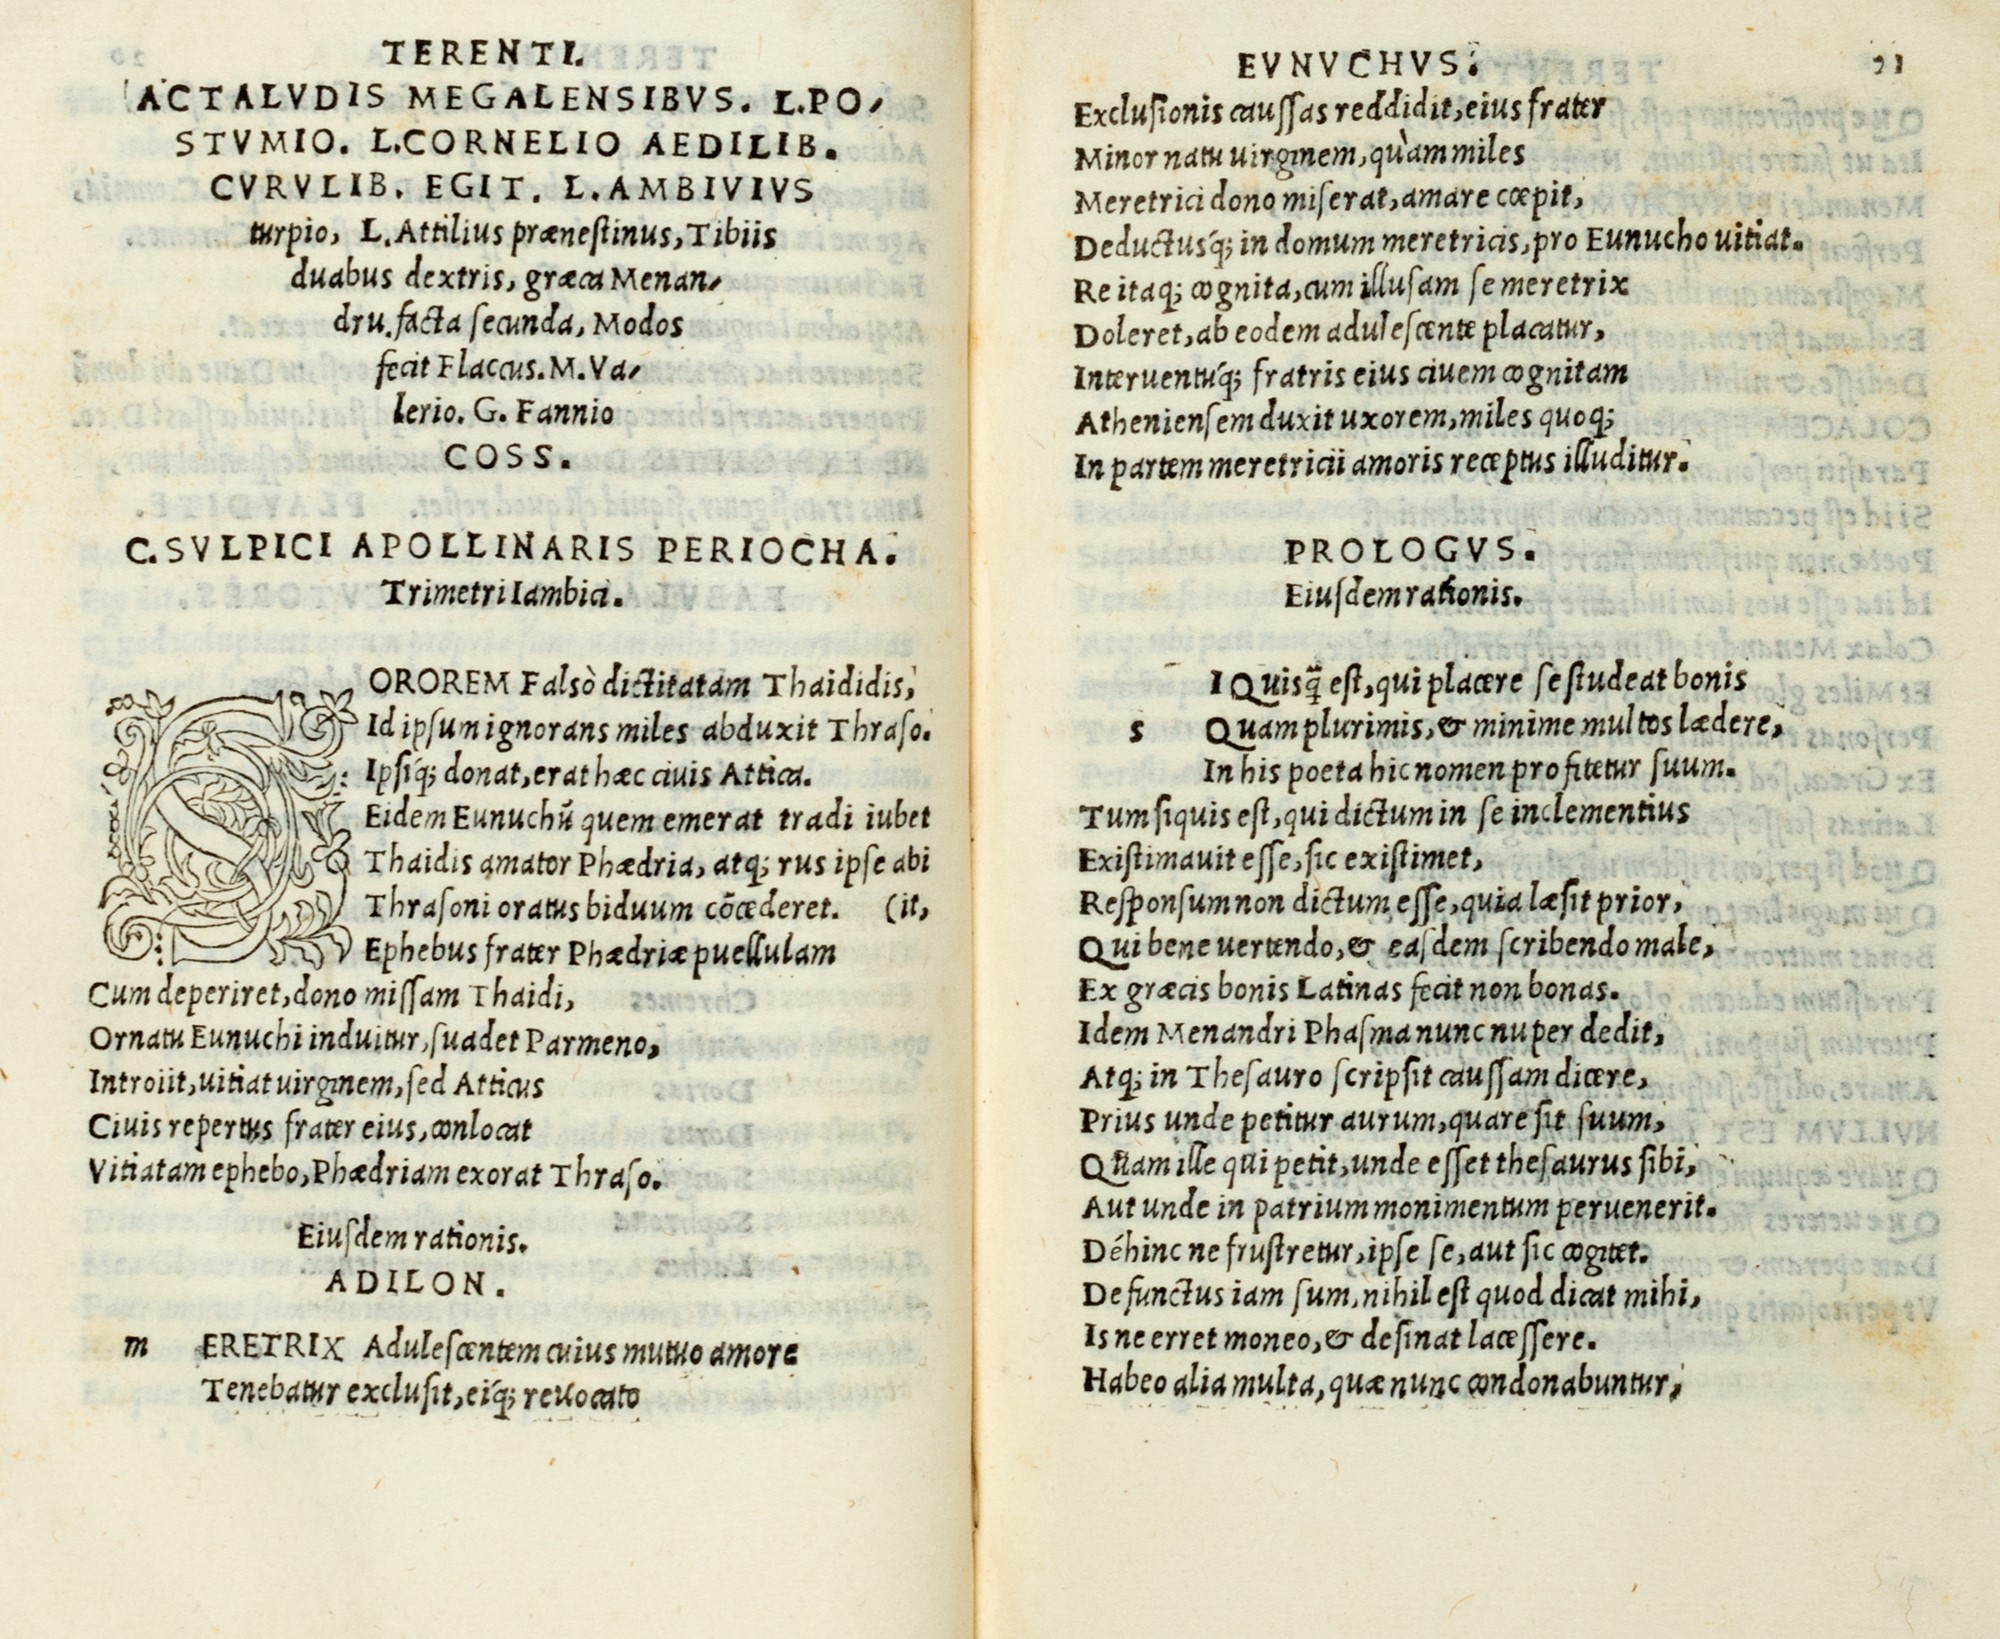 TERENTI.
ACTA LVDIS MEGALENSIBVS. L.PO-
STVMIO. L.CORNELIO AEDILIB.
CVRVLIB. EGIT. L.AMBIVIVS
turpio, L.Attilius prænestinus, Tibiis
duabus dextris, græca Menan-
dru.facta secunda, Modos
fecit Flaccus.M.Va-
lerio. G. Fannio
COSS.
C.SVLPICI APOLLINARIS PERIOCHA.
Trimetri Iambici.
SOROREM Falsò dictitatam Thaididis,
Id ipsum ignorans miles abduxit Thraso.
Ipsiq́; donat, erat hæc ciuis Attica.
Eidem Eunuchū quem emerat tradi iubet
Thaidis amator Phædria, atq; rus ipse abi
Thrasoni oratus biduum cōcederet. (it,
Ephebus frater Phædriæ puellulam
Cum deperiret, dono missam Thaidi,
Ornatu Eunuchi induitur, suadet Parmeno,
Introiit, uitiat uirginem, sed Atticus
Ciuis repertus frater eius, conlocat
Vitiatam ephebo, Phædriam exorat Thraso.
Eiusdem rationis.
ADILON.
m ERETRIX Adulescentem cuius mutuo amore
Tenebatur exclusit, eiq́; reuocato
EVNVCHVS. 21
Exclusionis caussas reddidit, eius frater
Minor natu uirginem, quàm miles
Meretrici dono miserat, amare cœpit,
Deductusq́; in domum meretricis, pro Eunucho uitiat.
Re itaq; cognita, cum illusam se meretrix
Doleret, ab eodem adulescente placatur,
Interuentuq́; fratris eius ciuem cognitam
Atheniensem duxit uxorem, miles quoq;
In partem meretricii amoris receptus illuditur.
PROLOGVS.
Eiusdem rationis.
I Quisq̃ est, qui placere se studeat bonis
s Quam plurimis, & minime multos lædere,
In his poeta hic nomen profitetur suum.
Tum siquis est, qui dictum in se inclementius
Existimauit esse, sic existimet,
Responsum non dictum esse, quia læsit prior,
Qui bene uertendo, & easdem scribendo male,
Ex græcis bonis Latinas fecit non bonas.
Idem Menandri Phasma nunc nuper dedit,
Atq; in Thesauro scripsit caussam dicere,
Prius unde petitur aurum, quare sit suum,
Quam ille qui petit, unde esset thesaurus sibi,
Aut unde in patrium monimentum peruenerit.
Déhinc ne frustretur, ipse se, aut sic cogitet.
Defunctus iam sum, nihil est quod dicat mihi,
Is ne erret moneo, & desinat lacessere.
Habeo alia multa, quæ nunc condonabuntur,